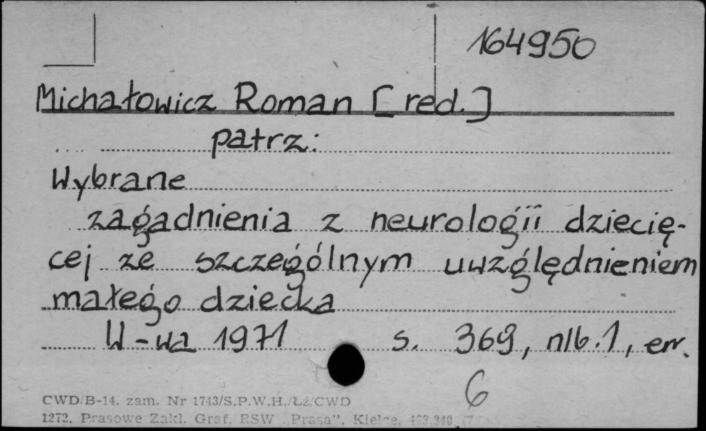 164950
Michałowicz Roman [red.]
patrz:
Wybrane
zagadnienia z neurologii dziecię-
cej ze szczególnym uwzględnieniem
małego dziecka
W-wa 1971 s. 369, nlb. 1, err.
6
CWD/B-14. zam. Nr 1743/S.P.W.H./Łż/CWD
1272. Prasowe Zakł. Graf. RSW „Prasa”, Kielce.